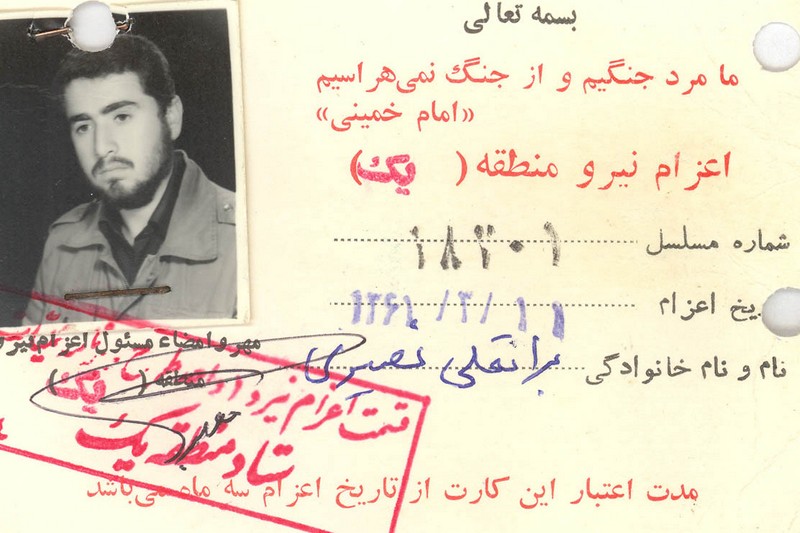 بسمه تعالی
ما مرد جنگیم و از جنگ نمی‌هراسیم
«امام خمینی»
اعزام نیرو منطقه ( یک )
شماره مسلسل ۱۸۳۰۱
یخ اعزام ۱۳۶۱/۳/۱۱
نام و نام خانوادگی براتعلی نصیری
مهر و امضاء مسئول اعزام نیرو
منطقه ( یک )
قسمت اعزام نیرو
ستاد منطقه یک
مدت اعتبار این کارت از تاریخ اعزام سه ماه می‌باشد